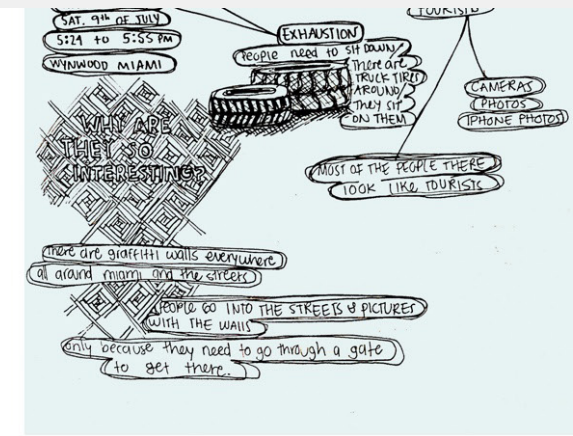 TOURISTS
SAT. 9th OF JULY
5:21 to 5:55 PM
WYNWOOD MIAMI
EXHAUSTION
PEOPLE need to SIT DOWN
There are
TRUCK TIRES
AROUND
They SIT
ON THEM
CAMERAS
PHOTOS
IPHONE PHOTOS
MOST OF THE PEOPLE THERE
LOOK LIKE TOURISTS
WHY ARE
THEY SO
INTERESTING?
There are graffitti walls everywhere
all around miami and the streets
PEOPLE GO INTO THE STREETS & PICTURES
WITH THE WALLS
only because they need to go through a gate
to get there.